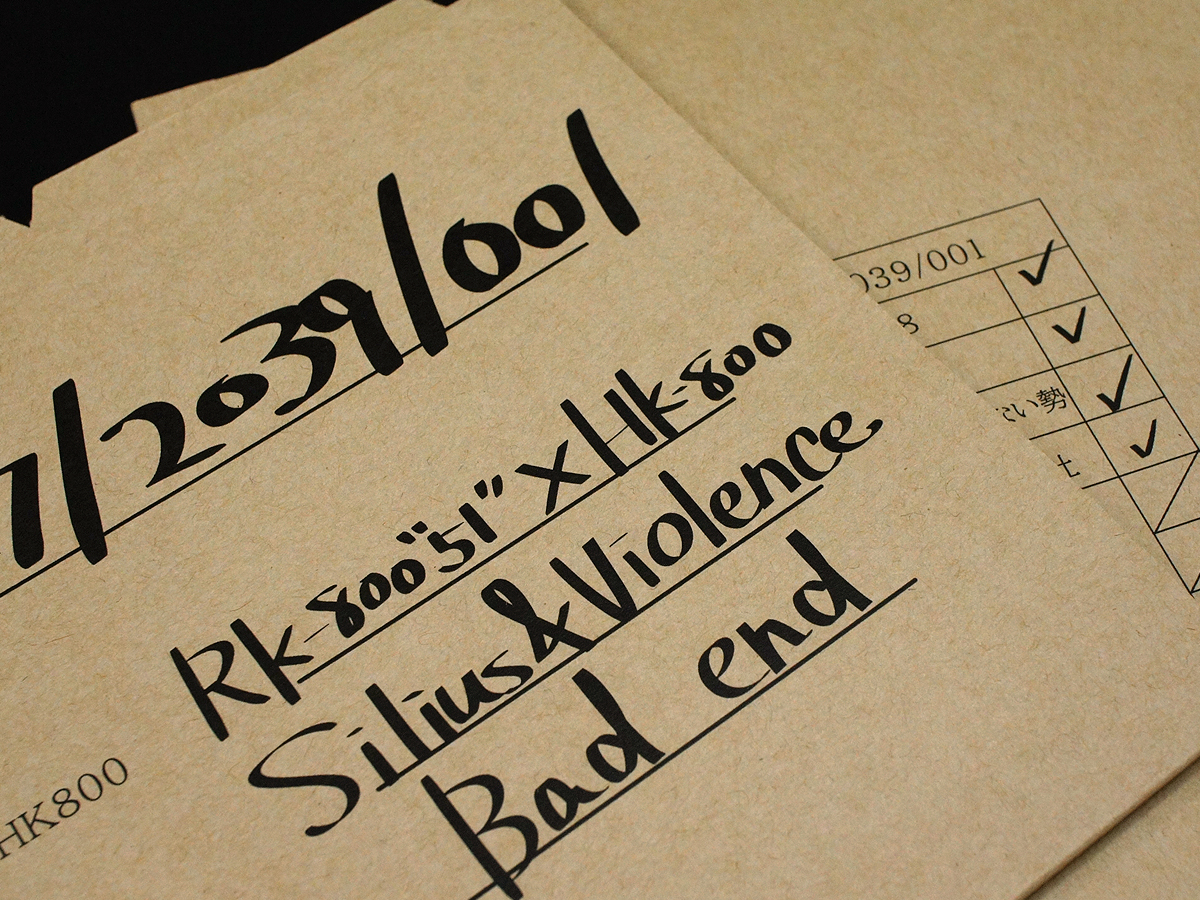 7/2039/001
Rk-800"51" x Hk-800
Silius & Violence
Bad end
HK800
039/001
8
い勢
t